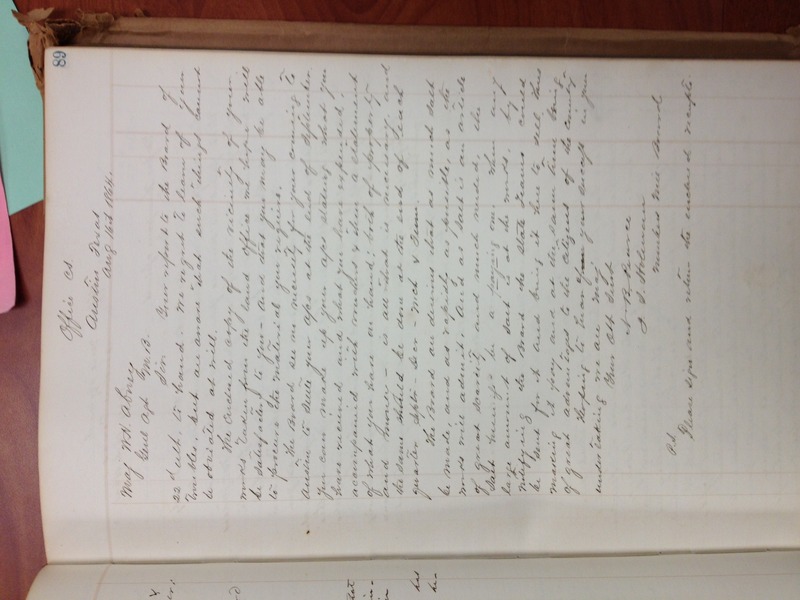 89
Office CS.
Austin Texas
Aug 16th 1864.
Maj W.H. Abney
Genl Agt M.B.
Sir Your report to the Board of
22d ulto, to hand. We regret to learn of your
troubles, but are aware that such things cannot
be obviated at will.
The enclosed copy of the vicinity of your
works taken from the Land Office we hope will
be satisfactory to you - and that you may be able
to procure the material you require.
The Board see no necessity for your coming to
Austin to settle your a/cs at the end of September
You can make up your a/cs stating what you
have received and what you have expended,
accompanied with vouchers & then a statement
of what you have on hand; both of property
and money - is all that is necessary and
the same should be done at the end of each
quarter Septr - Decr - Mch & June.
The Board are desirous that as much salt
be made, and as rapidly as possible, as the
works will admit. And as salt is an article
of great scarcity and much needed, the
Salt be a paying one. When any
large amount of salt is at the works, by
notifying the Board the State Teams could
be sent for it and bring it here to sell, thus
making it pay and at the same time being
of great advantage to the citizens of the country
Hoping to hear from your success in your
undertaking we are Maj
Your Obt Svts
N. B. Pearce
J. S. Holman
Members Mil Board
P.S.
Please sign and return the enclosed receipts.